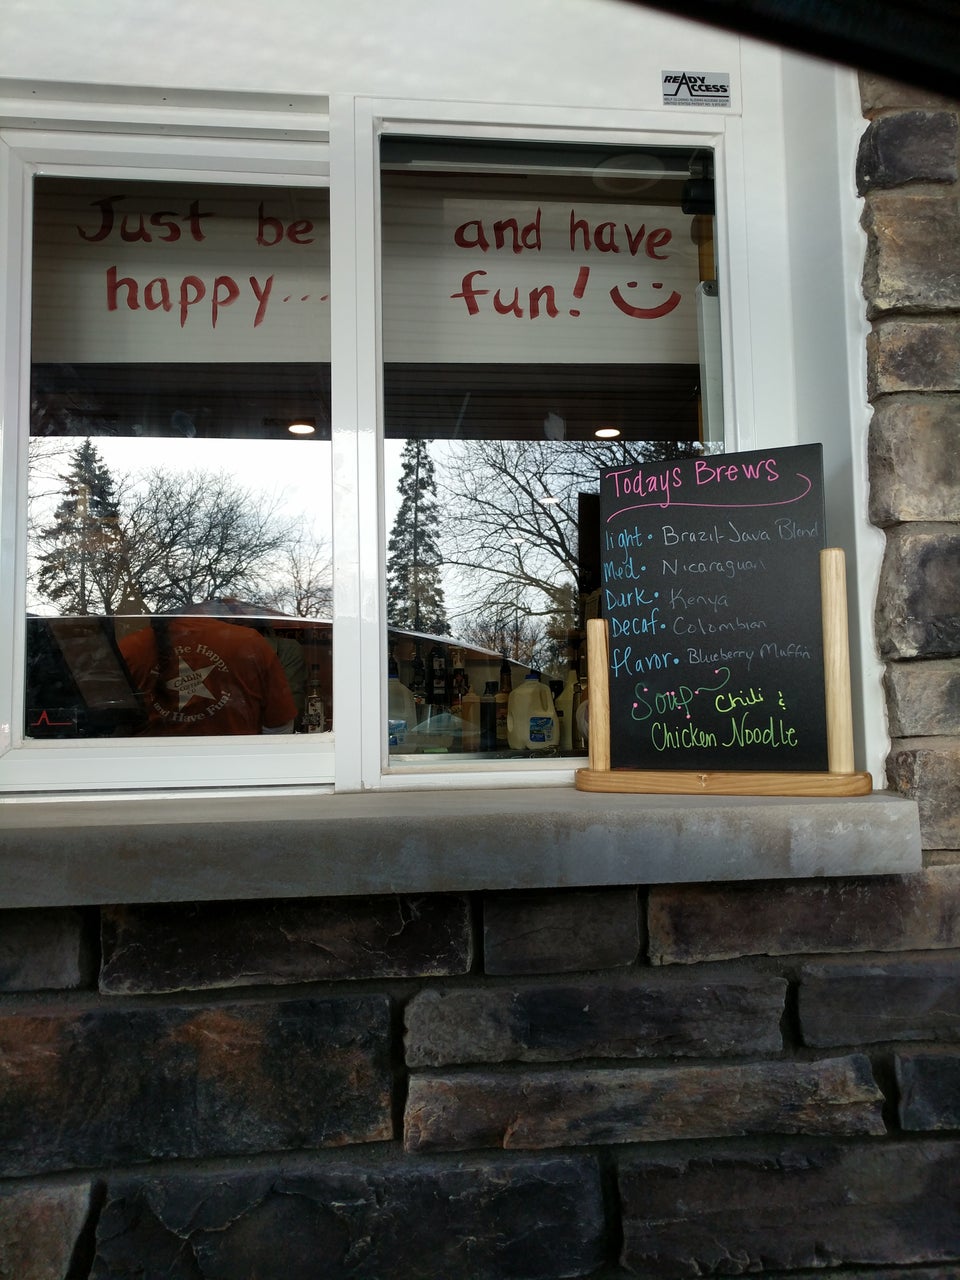 READY
ACCESS
Just be
happy...
and have
fun!
Todays Brews
light • Brazil-Java Blend
Med • Nicaraguan
Dark • Kenya
Decaf • Colombian
flavor • Blueberry Muffin
Soup Chili &
Chicken Noodle
Be Happy
CABIN
COFFEE
CO.
and Have Fun!